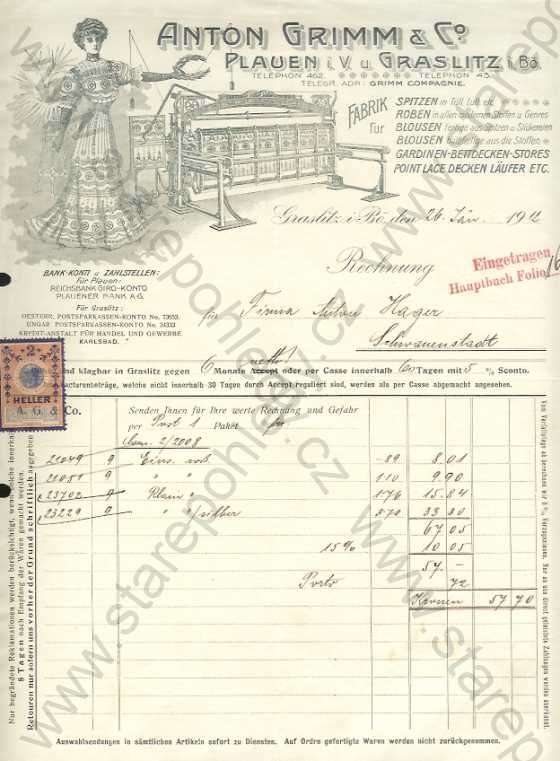 ANTON GRIMM & Co.
PLAUEN i. V. u. GRASLITZ i. Bö.
TELEPHON 462. TELEPHON 43.
TELEGR. ADR.: GRIMM COMPAGNIE.
FABRIK für
SPITZEN in Tüll, Luft etc.
ROBEN in allen modernen Stoffen u. Genres
BLOUSEN fertige aus Spitzen u. Stickereien
BLOUSEN halbfertige aus div. Stoffen
GARDINEN-BETTDECKEN-STORES
POINT LACE DECKEN LÄUFER ETC.
Graslitz i. Bö., den 26. Jän. 1912
Rechnung
Eingetragen
Hauptbuch Folio 16
BANK-KONTI u. ZAHLSTELLEN:
für Plauen:
REICHSBANK GIRO-KONTO
PLAUENER BANK A.-G.
Für Graslitz:
OESTERR. POSTSPARKASSEN-KONTO No.
UNGAR. POSTSPARKASSEN-KONTO No.
KREDIT-ANSTALT FÜR HANDEL UND GEWERBE
KARLSBAD.
für Firma Anton Hager
Schwanenstadt
netto!
und klagbar in Graslitz gegen 6 Monats Accept oder per Casse innerhalb 60 Tagen mit 5 % Sconto.
Facturenbeträge, welche nicht innerhalb 30 Tagen durch Accept reguliert sind, werden als per Casse abgemacht angesehen.
2
HELLER
A. G. & Co.
Senden Ihnen für Ihre werte Rechnung und Gefahr
per Post 1 Paket
2/2008
21049 9 89 8.01
21059 9 " " 110 9.90
23702 9 176 15.84
23229 9 " 370 33.30
67.05
15% 10.05
57.-
Porto 72
Kronen 57 70
Nur begründete Reklamationen werden berücksichtigt, wenn solche innerhalb
8 Tagen nach Empfang der Waren gemacht werden.
Retouren nur sofern uns vorher der Grund schriftlich angegeben
Auswahlsendungen in sämtlichen Artikeln sofort zu Diensten. Auf Ordre gefertigte Waren werden nicht zurückgenommen.
www.starepohledy.cz